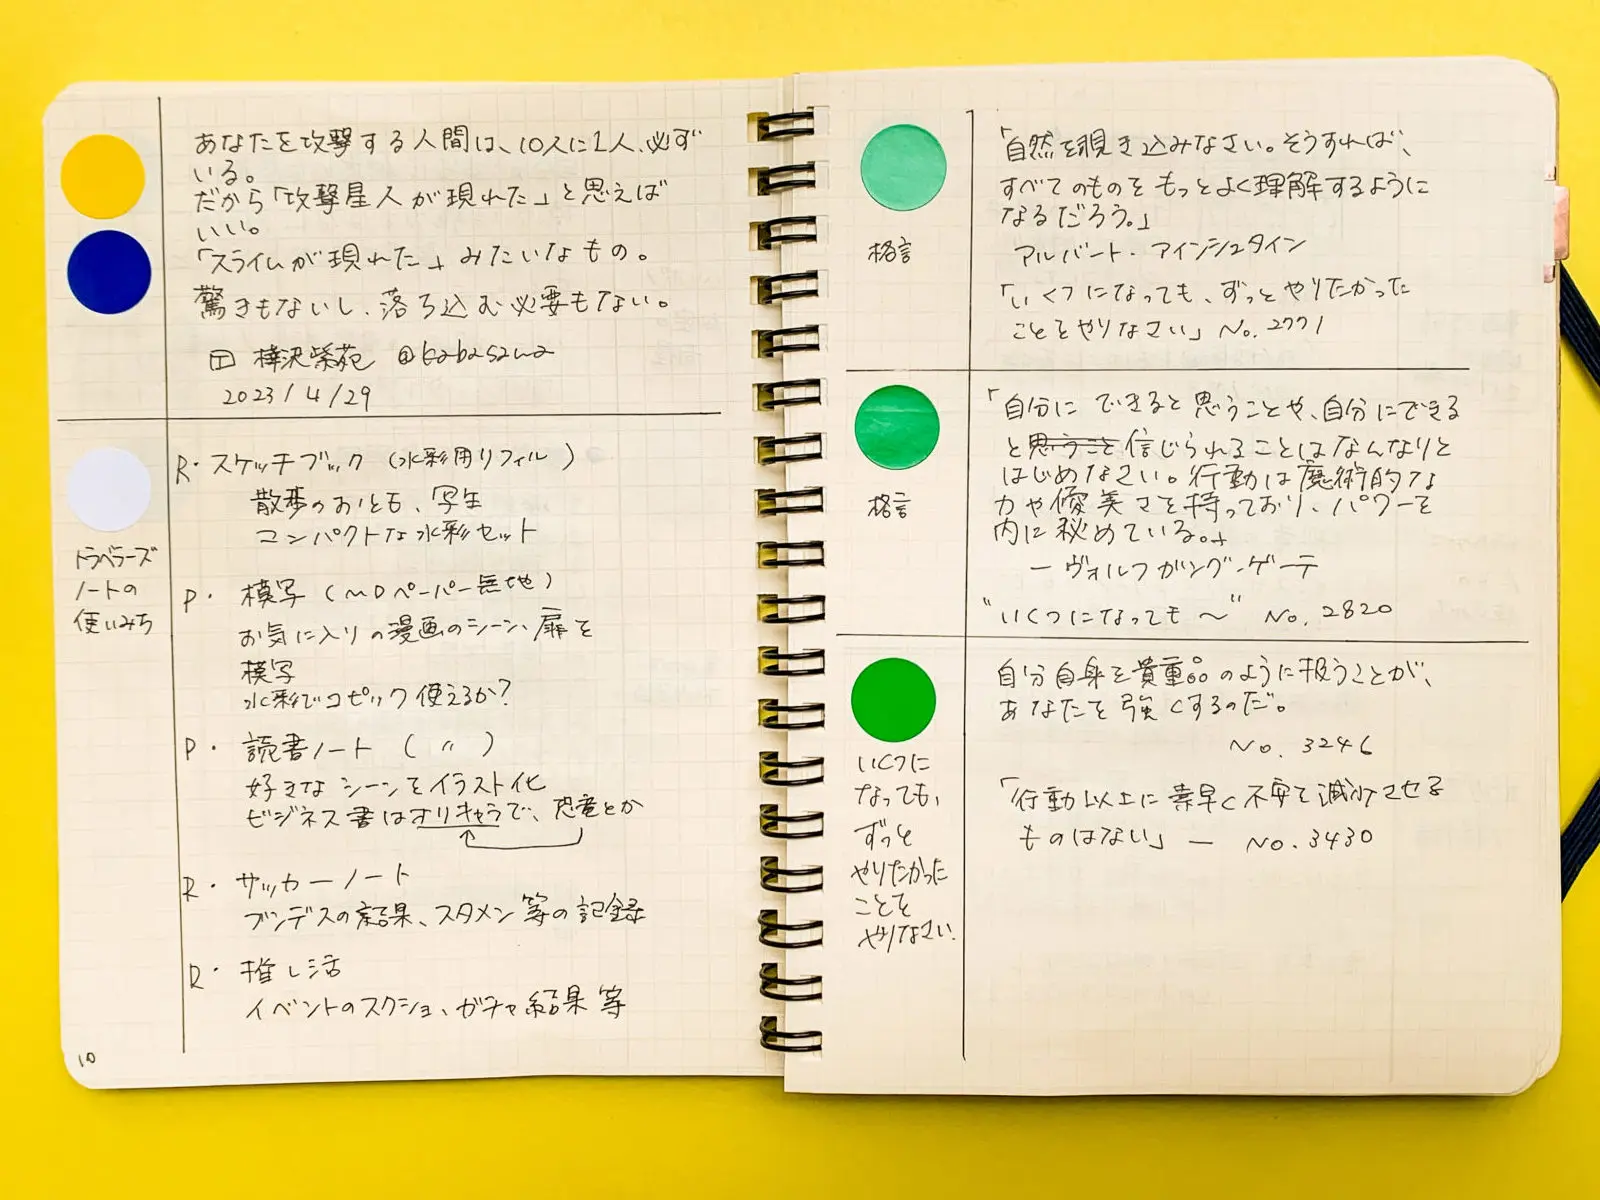 あなたを攻撃する人間は、10人に1人、必ず
いる。
だから「攻撃星人が現れた」と思えば
いい。
「スライムが現れた」みたいなもの。
驚きもないし、落ち込む必要もない。
樺沢紫苑 @kabasawa
2023/4/29
トラベラーズ
ノートの
使いみち
R・スケッチブック (水彩用リフィル)
散歩のおとも、写生
コンパクトな水彩セット
P・模写 (MDペーパー無地)
お気に入りの漫画のシーン、扉を
模写
水彩でコピック使えるか?
P・読書ノート ( 〃 )
好きなシーンをイラスト化
ビジネス書はオリキャラで、恐竜とか
R・サッカーノート
ブンデスの結果、スタメン等の記録
R・推し活
イベントのスクショ、ガチャ結果等
10
格言
「自然を覗き込みなさい。そうすれば、
すべてのものをもっとよく理解するように
なるだろう。」
アルバート・アインシュタイン
「いくつになっても、ずっとやりたかった
ことをやりなさい」No.2771
格言
「自分にできると思うことや、自分にできる
と思うこと信じられることはなんなりと
はじめなさい。行動は魔術的な
力や優美さを持っており、パワーを
内に秘めている。」
ーヴォルフガング・ゲーテ
"いくつになっても〜" No.2820
いくつに
なっても、
ずっと
やりたかった
ことを
やりなさい
自分自身を貴重品のように扱うことが、
あなたを強くするのだ。
No.3246
「行動以上に素早く不安を減少させる
ものはない」— No.3430